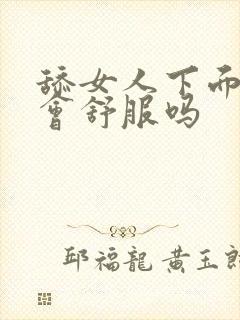 舔女人下而
會舒服吗
邱福龍 黄玉郎